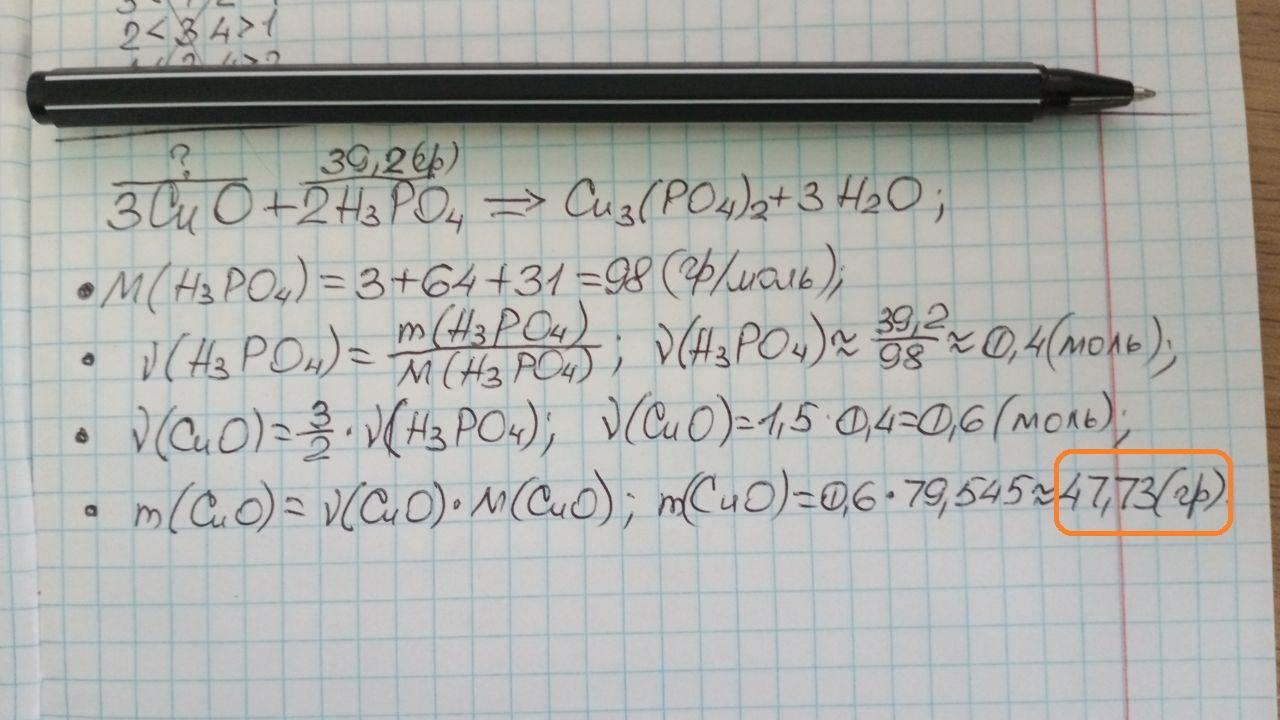 2<3 4>1
?
39,2(гр)
3CuO+2H₃PO₄ ⇒ Cu₃(PO₄)₂+3H₂O;
• M(H₃PO₄)=3+64+31=98(гр/моль);
• ν(H₃PO₄)=m(H₃PO₄)/M(H₃PO₄); ν(H₃PO₄)≈39,2/98≈0,4(моль);
• ν(CuO)=3/2·ν(H₃PO₄); ν(CuO)=1,5·0,4=0,6(моль);
• m(CuO)=ν(CuO)·M(CuO); m(CuO)=0,6·79,545≈47,73(гр)